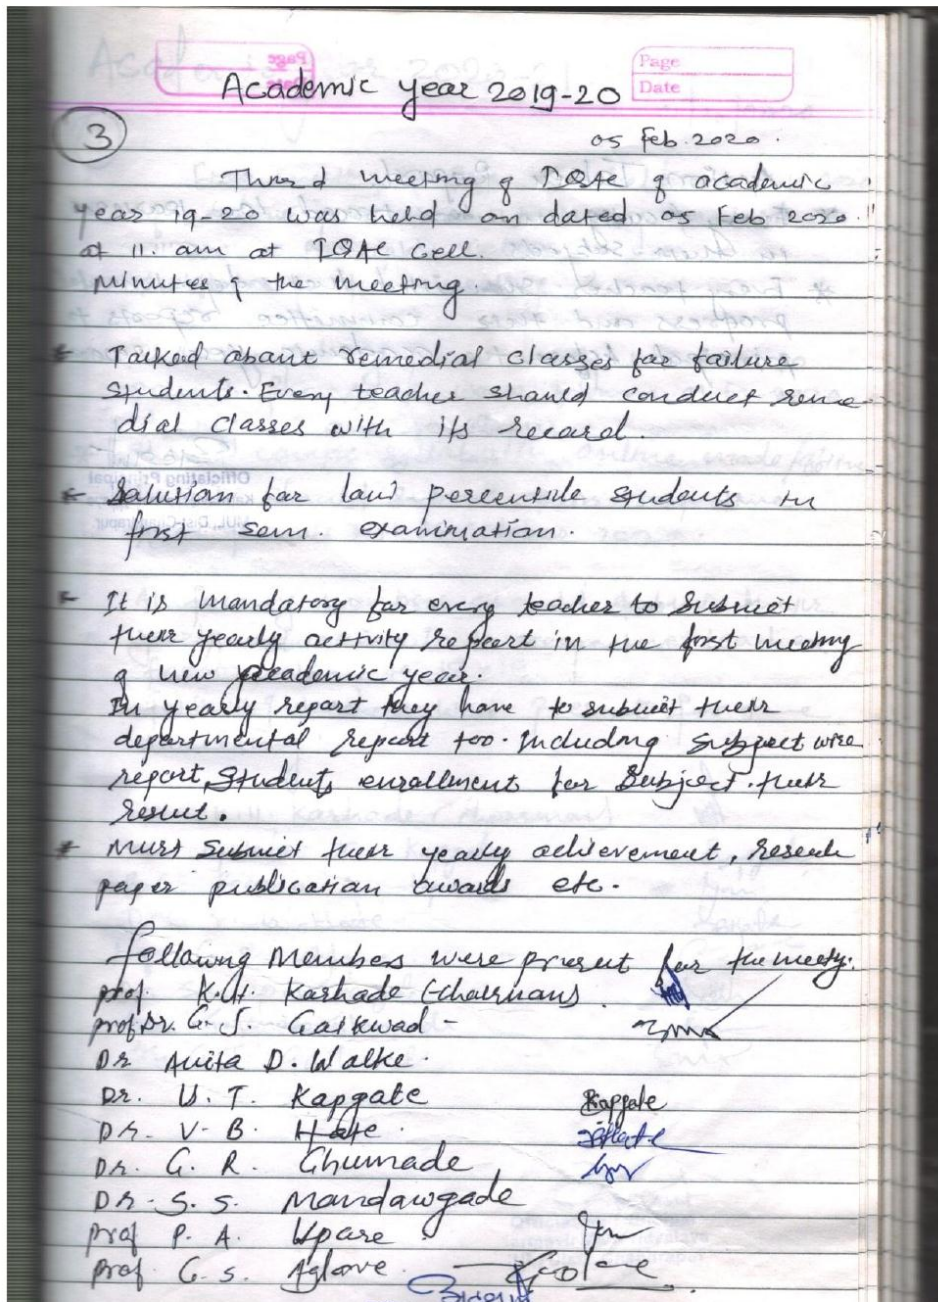 Page
Date
Academic year 2019-20
3
05 Feb. 2020.
Third meeting of IQAC of academic
year 19-20 was held on dated 05 Feb 2020
at 11. am at IQAC Cell.
Minutes of the meeting.
* Talked about remedial classes for failure
students. Every teacher should conduct reme-
dial classes with its record.
* Solution for low percentile students in
first sem. examination.
* It is mandatory for every teacher to submit
their yearly activity report in the first meeting
of new academic year.
In yearly report they have to submit their
departmental report too. Including subject wise
report, Students enrollment for Subject. their
result.
* Must submit their yearly achievement, research
paper publication awards etc.
Following Members were present for the meeting.
prof. K.H. Karhade (Chairman)
prof. Dr. G. S. Gaikwad -
Dr Anita D. Walke.
Dr. U. T. Kapgate Kapgate
Dr. V. B. Hate.
Dr. G. R. Ghumade
Dr. S. S. Mandawgade
prof P. A. Upare
prof. G. S. Aglave.